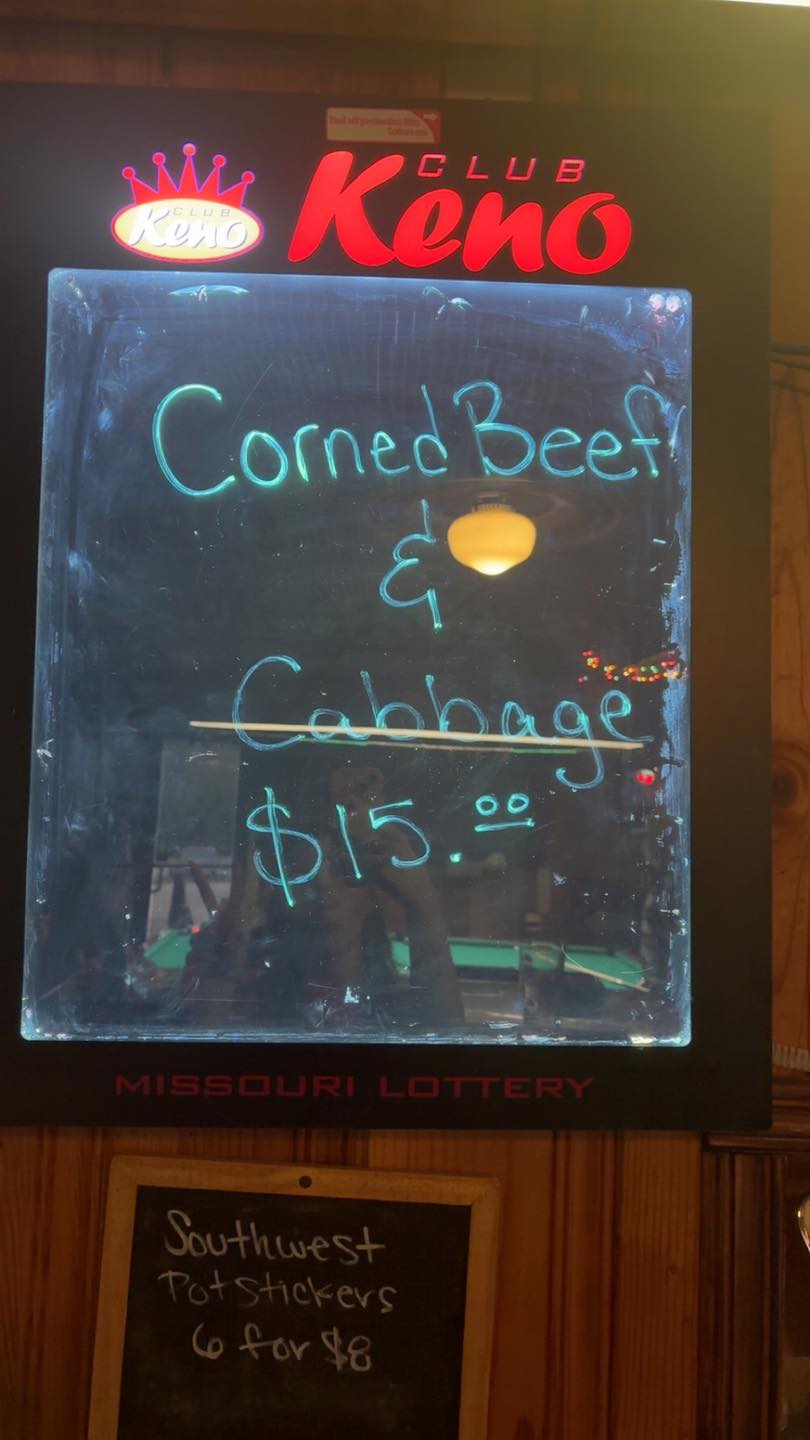 CLUB
Keno
CLUB
Keno
Corned Beef
&
Cabbage
$15.00
MISSOURI LOTTERY
Southwest
Potstickers
6 for $8